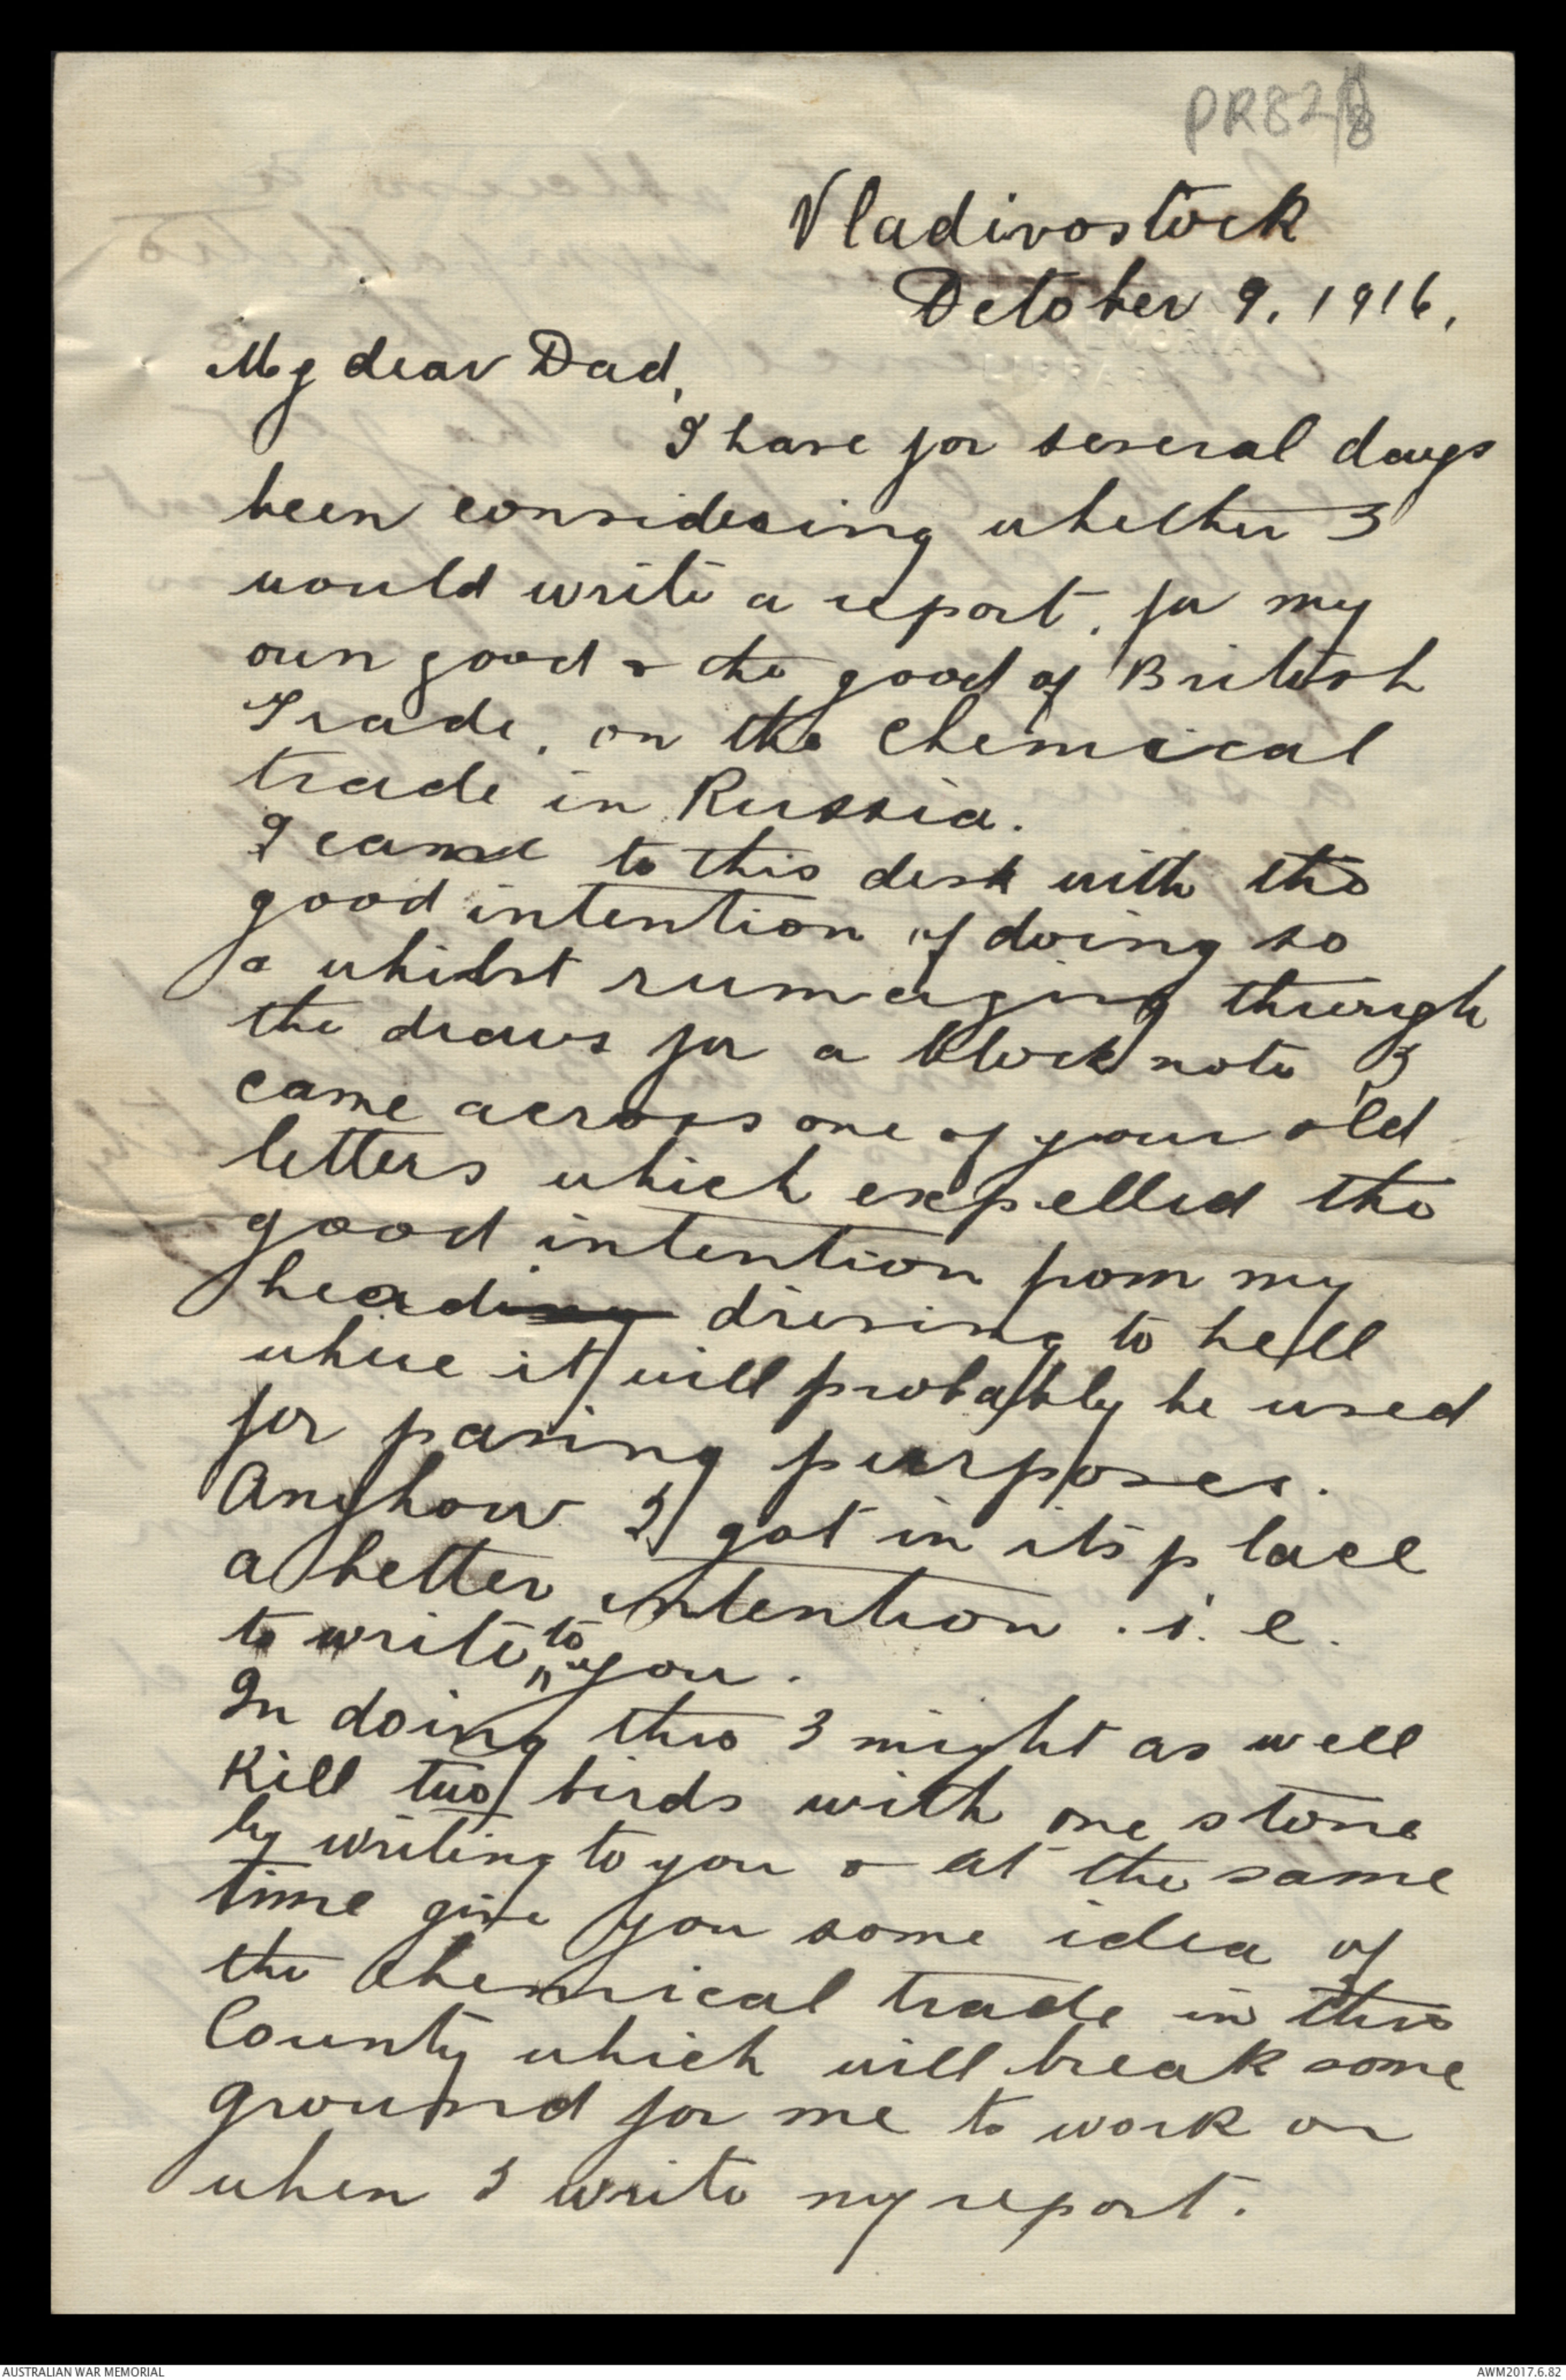 PR82/8
Vladivostock
October 9. 1916.
My dear Dad,
I have for several days
been considering whether I
would write a report, for my
own good & the good of British
Trade, on the Chemical
trade in Russia.
I came to this desk with the
good intention of doing so
& whilst rumaging through
the draws for a block note I
came across one of your old
letters which expelled the
good intention from my
heading driving to hell
where it will probably be used
for paving purposes.
Anyhow I got in its place
a better intention. i. e.
to write to you.
In doing this I might as well
kill two birds with one stone
by writing to you & at the same
time give you some idea of
the Chemical trade in this
County which will break some
ground for me to work on
when I write my report.
AUSTRALIAN WAR MEMORIAL
AWM2017.6.82